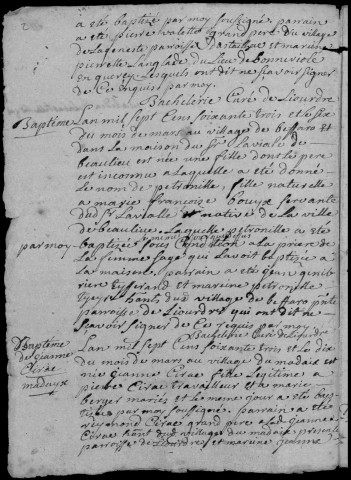 a ete baptizé par moy soussigné, parrain
a ete pierre valette grand pere du village
de lageneste paroisse Dastaillac et marine
pierrette Langlade du Lieu de bonneviole
en quercy Lesquels ont dit ne scavoir signer
de Ce requis par moy.
Bachelerie Curé de Liourdre
Baptême
Lan mil sept Cens soixante trois et le six
du mois de mars au village de beffaro et
dans la maison du Sr Laviale de
beaulieu est née une fille dont le pere
est inconnu a Laquelle a été donné
Le nom de petronille, fille naturelle
a marie francoise bouyx servante
dud Sr Lavialle et native de la ville
de beaulieu. Laquelle petronille a ete
par moy baptizée sous Condition a la priere de
La femme sage qui Lavoit baptizée a
La maison. parrain a ete jean
tisserand et marine petronille
hants dud village de beffaro pnte
paroisse de Liourdre qui ont dit ne
scavoir signer de Ce requis par moy
Bachelerie Curé de Liourdre
Baptême
de Jeanne
Cirae
madaye
Lan mil sept Cens soixante trois et le dix
du mois de mars au village du madaie est
née Jeanne Cirae fille Legitime a
pierre Cirae travailleur et a marie
berger mariés et le meme jour a ete bap
tizée par moy soussigné. parrain a ete
raymond Cirae grand pere a lad jeanne
Cirae hant dud village du madaie presente
paroisse de Liourdre et marine jeanne